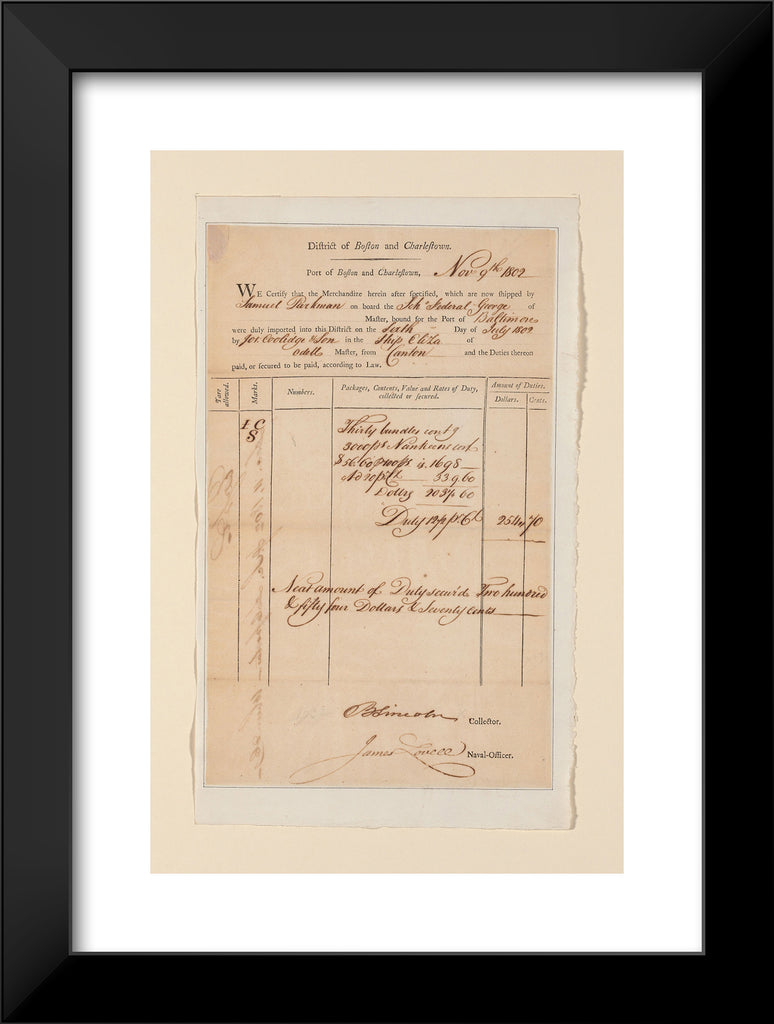 Diſtrict of Boſton and Charleſtown.
Port of Boſton and Charleſtown, Nov 9th 1802
WE Certify that the Merchandize herein after ſpecified, which are now ſhipped by
Samuel Parkman on board the Schr Federal George of
Maſter, bound for the Port of Baltimore
were duly imported into this Diſtrict on the Sixth Day of July 1802
by Jos. Coolidge & Son in the Ship Eliza of
Odell Maſter, from Canton and the Duties thereon
paid, or ſecured to be paid, according to Law.
Tare allowed.
Marks.
Numbers.
Packages, Contents, Value and Rates of Duty, collected or ſecured.
Amount of Duties.
Dollars. Cents.
I C
S
Thirty bundles contg
3000 ps Nankeens cost
$56.60 p 100 ps is 1698
Ad 20 p Ct 339.60
Dollars 2037.60
Duty 12½ p Ct 254 70
Neat amount of Duty secur'd Two hundred
& fifty four Dollars & Seventy Cents
B Lincoln Collector.
James Lovell Naval-Officer.